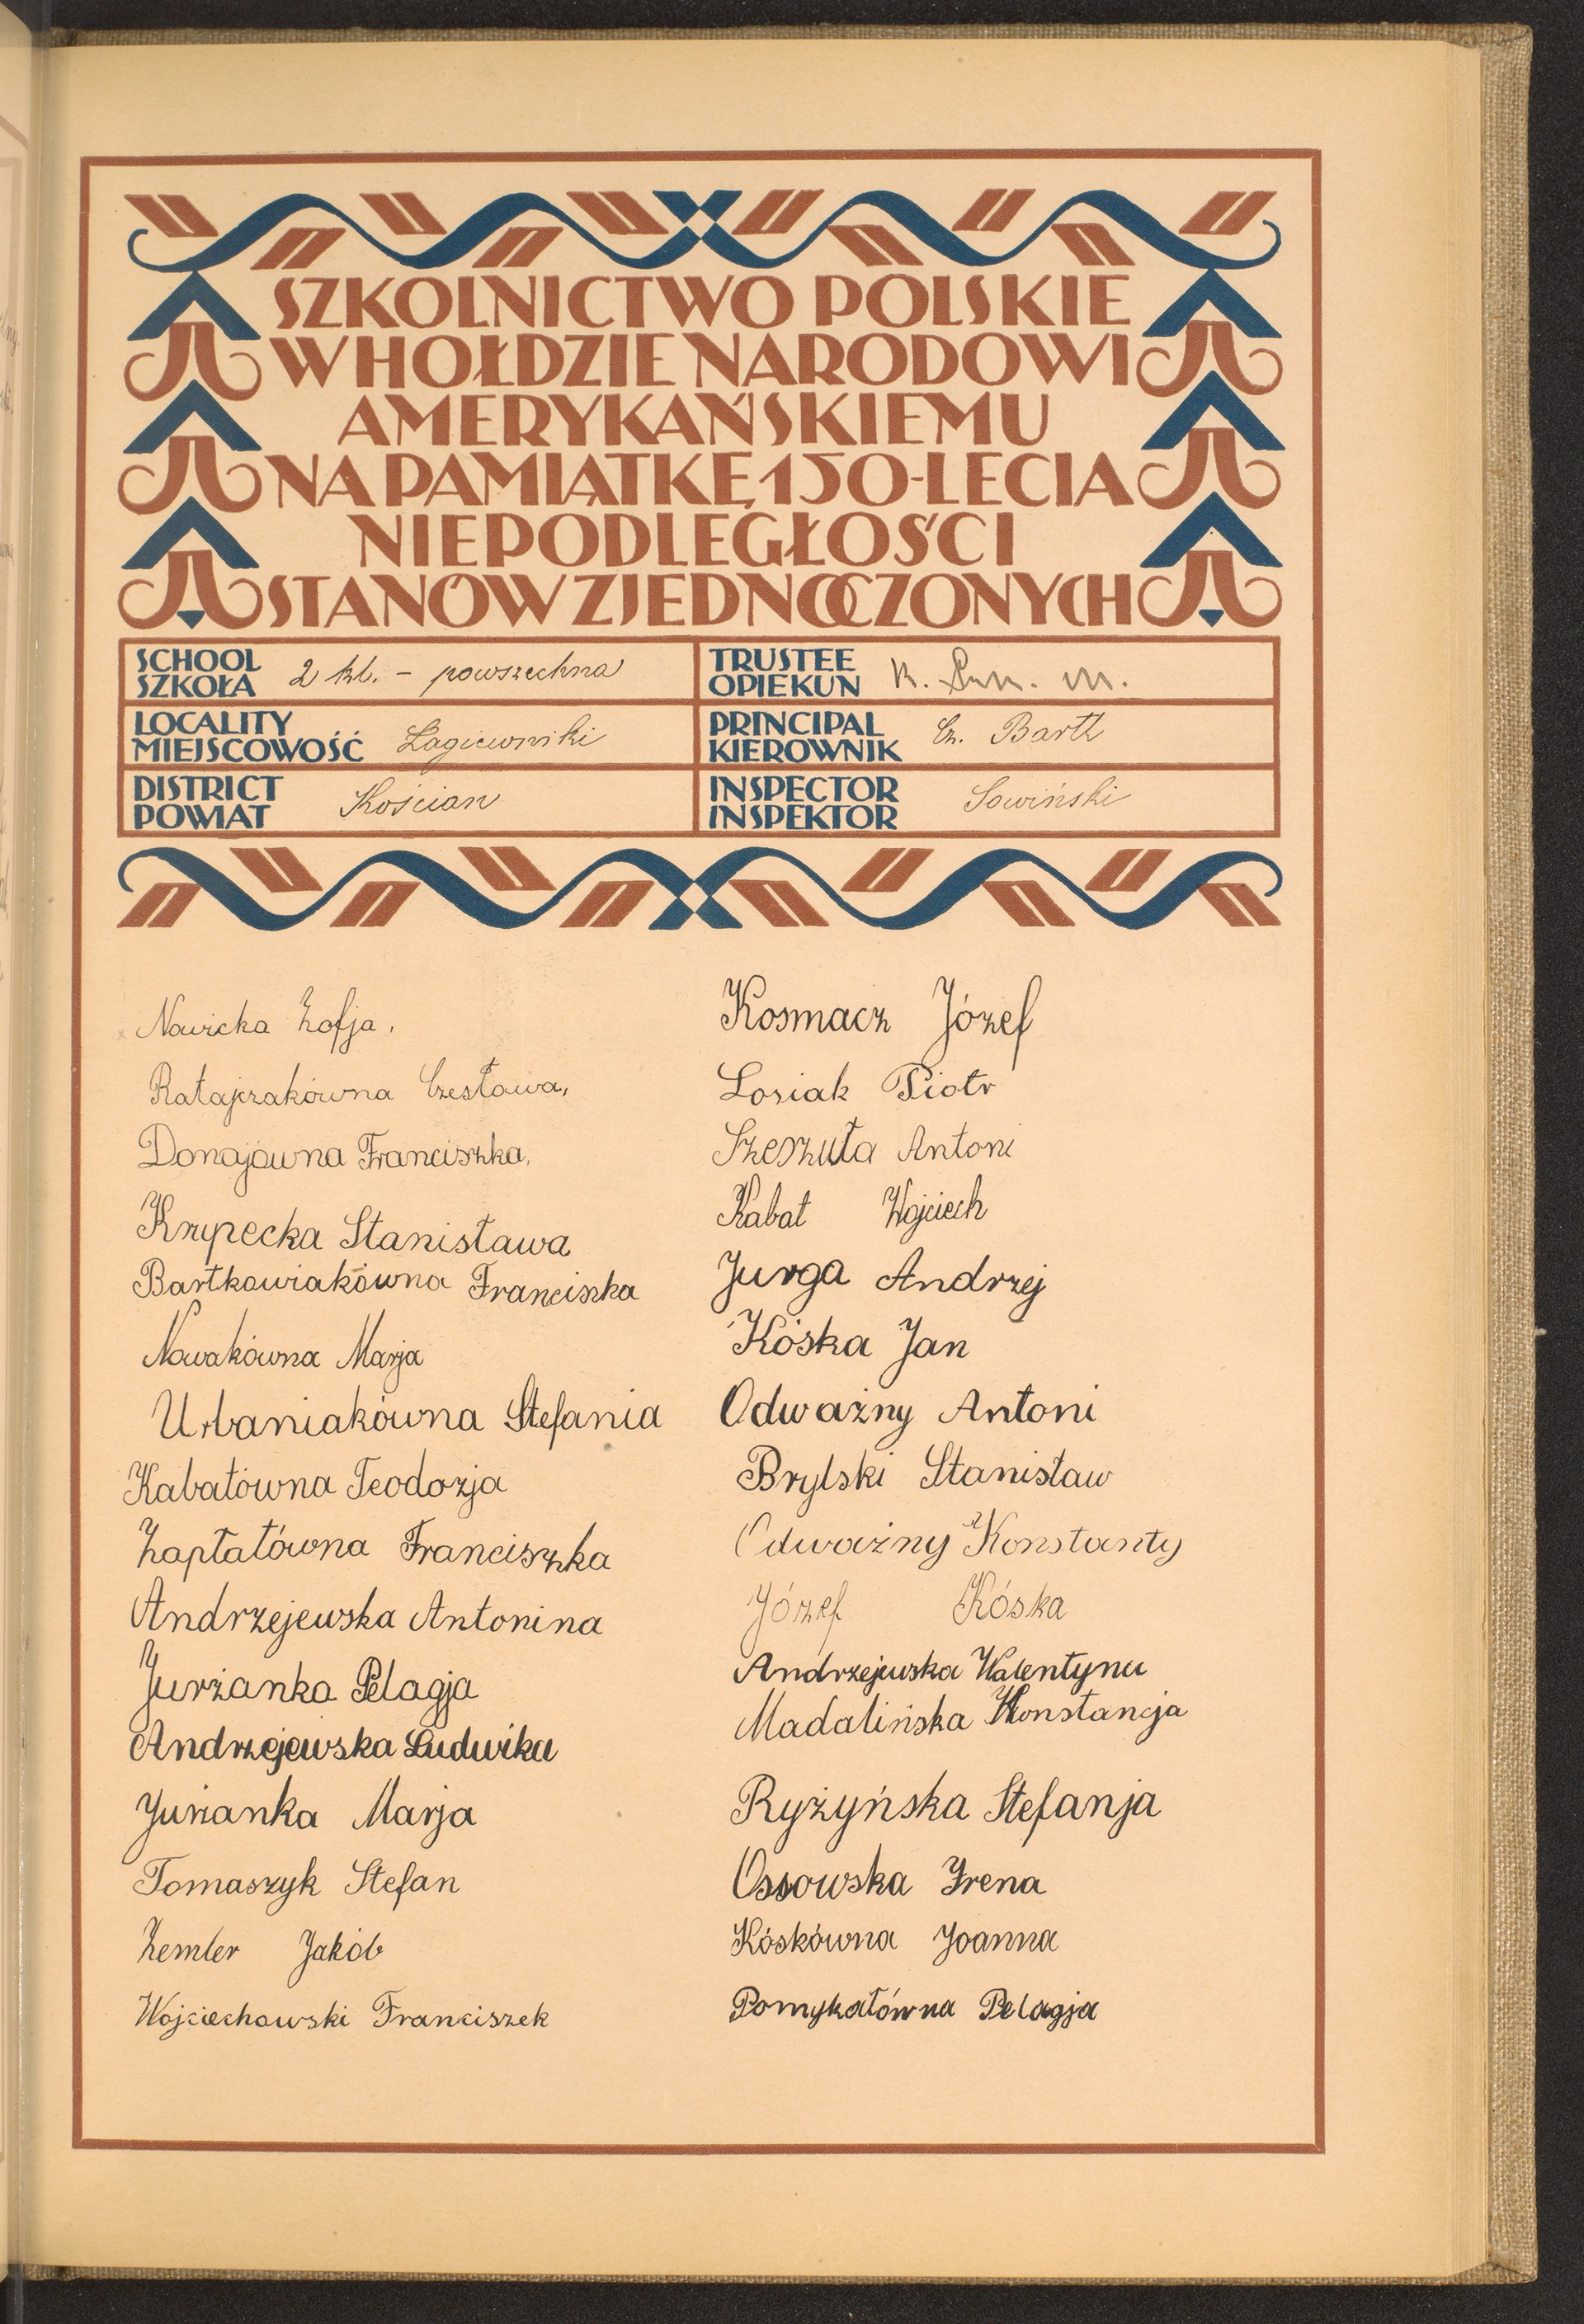 SZKOLNICTWO POLSKIE
W HOŁDZIE NARODOWI
AMERYKAŃSKIEMU
NA PAMIĄTKĘ 150-LECIA
NIEPODLEGŁOŚCI
STANÓW ZJEDNOCZONYCH
SCHOOL
SZKOŁA 2 kl. - powszechna
TRUSTEE
OPIEKUN
LOCALITY
MIEJSCOWOŚĆ Łagiewniki
PRINCIPAL
KIEROWNIK Cz. Barth
DISTRICT
POWIAT Kościan
INSPECTOR
INSPEKTOR Sowiński
Nowicka Zofja,
Ratajczakówna Czesława,
Donajówna Franciszka,
Krzypecka Stanisława
Bartkowiakówna Franciszka
Nowakówna Marja
Urbaniakówna Stefania
Kabatówna Teodozja
Zapłatówna Franciszka
Andrzejewska Antonina
Jurżanka Pelagja
Andrzejewska Ludwika
Jurżanka Marja
Tomaszyk Stefan
Zemler Jakób
Wojciechowski Franciszek
Kosmacz Józef
Łosiak Piotr
Szeszuła Antoni
Kabat Wojciech
Jurga Andrzej
Kóska Jan
Odważny Antoni
Brylski Stanisław
Odważny Konstanty
Józef Kóska
Andrzejewska Walentyna
Madalińska Konstancja
Ryżyńska Stefanja
Ossowska Irena
Kóskówna Joanna
Pomykałówna Pelagja